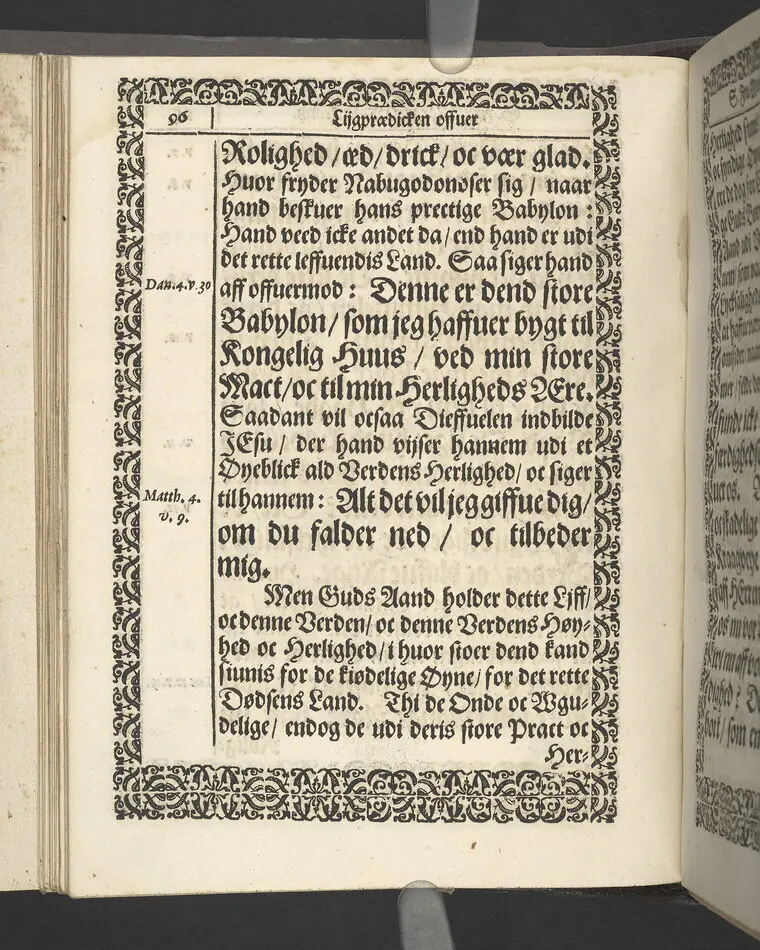 96
Lijgprædicken offuer
Rolighed / æd / drick / oc vær glad.
Huor fryder Nabugodonoser sig / naar
hand beskuer hans prectige Babylon:
Hand veed icke andet da / end hand er udi
det rette leffuendis Land. Saa siger hand
Dan. 4. v. 30
aff offuermod: Denne er dend store
Babylon / som jeg haffuer bygt til
Kongelig Huus / ved min store
Mact / oc til min Herligheds Ære.
Saadant vil ocsaa Dieffuelen indbilde
JEsu / der hand vijser hannem udi et
Øyeblick ald Verdens Herlighed / oc siger
Matth. 4.
v. 9.
til hannem: Alt det vil jeg giffue dig /
om du falder ned / oc tilbeder
mig.
Men Guds Aand holder dette Lijff /
oc denne Verden / oc denne Verdens Høy-
hed oc Herlighed / i huor stoer dend kand
siunis for de kiødelige Øyne / for det rette
Dødsens Land. Thi de Onde oc Wgu-
delige / endog de udi deris store Pract oc
Her-